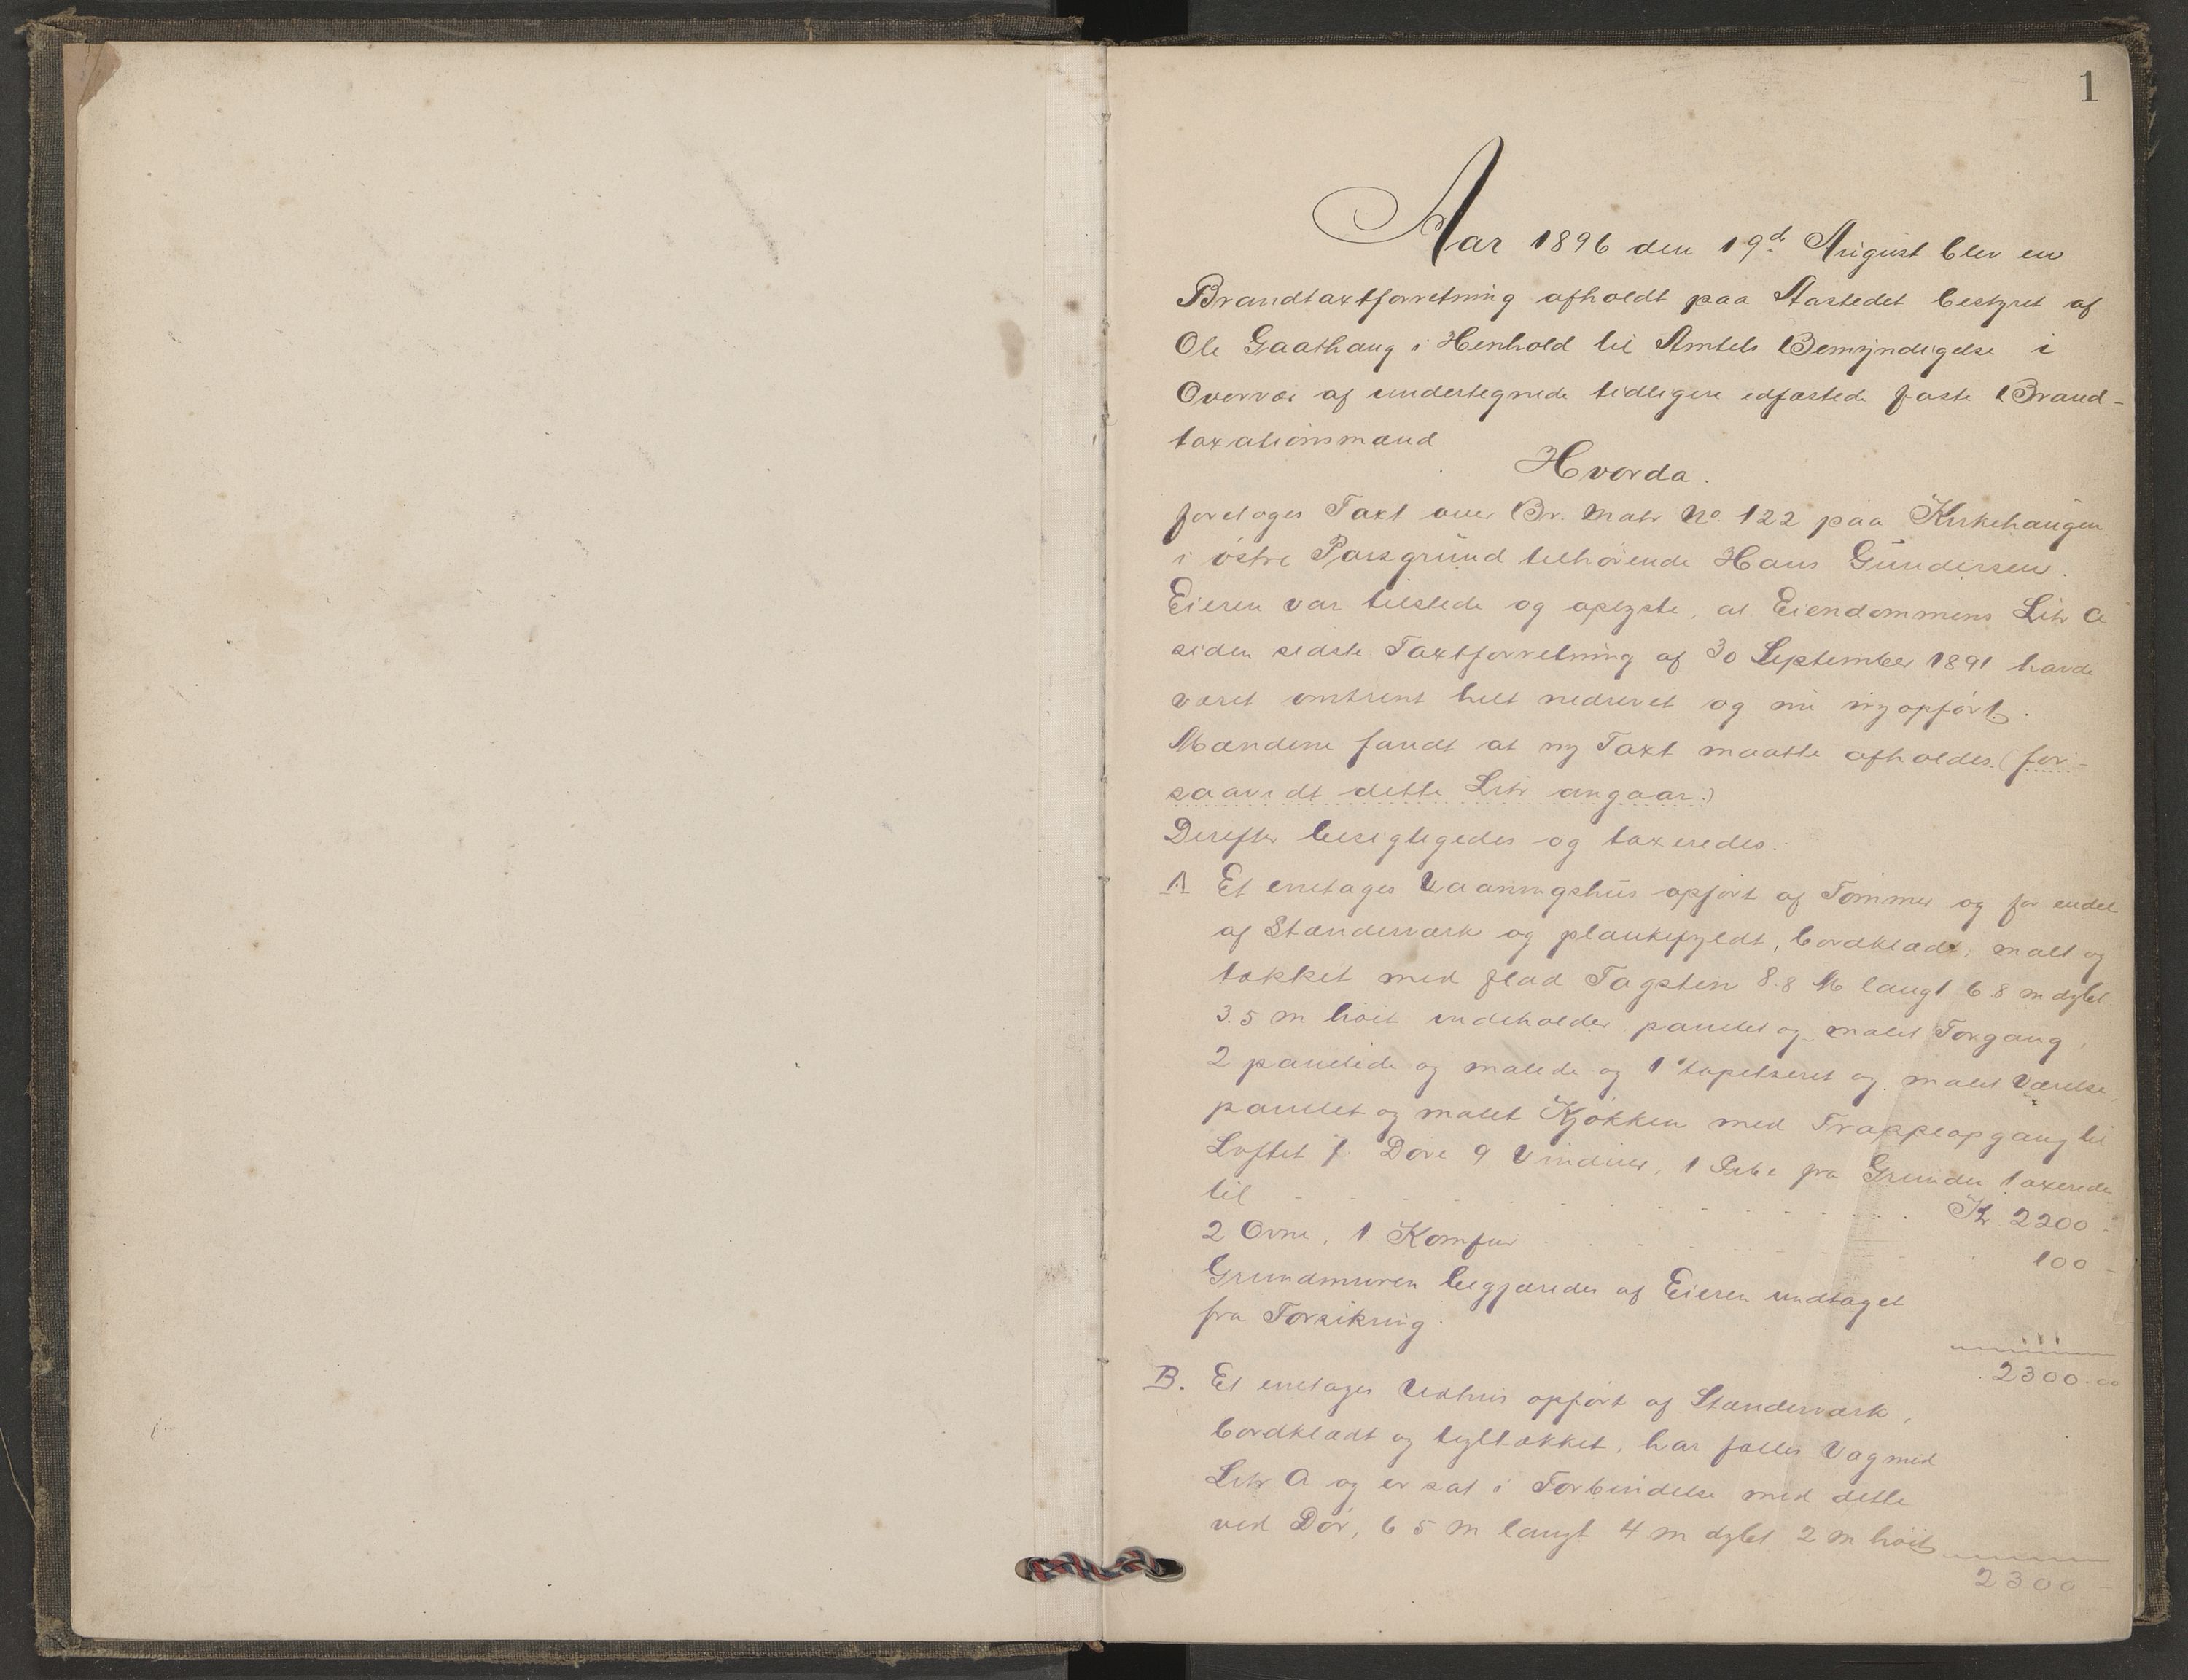 1
Aar 1896 den 19d. August blev en
Brandtaxtforretning afholdt paa Aastedet bestyret af
Ole Gaathaug i Henhold til Amtets Bemyndigelse i
Overvær af undertegnede tidligere edfæstede faste Brand-
taxationsmænd
Hvorda.
foretoges Taxt over Br. Matr No. 122 paa Kirkehaugen
i østre Porsgrund tilhørende Hans Gundersen.
Eieren var tilstede og oplyste, at Eiendommens Litr A
siden sidste Taxtforretning af 30 September 1891 havde
været omtrent helt nedrevet og nu nyopført.
Mændene fandt at ny Taxt maatte afholdes (for-
saavidt dette Litr angaar.)
Derefter besigtigedes og taxeredes.
A Et enetages Vaaningshus opført af Tømmer og for endel
af Stænderværk og plankefyldt, bordklædt, malt og
tækket med flad Tagsten 8.8 M langt 6 8 m dybt
3.5 m høit indeholder panelet og malet Forgang,
2 panelede og malede og 1 tapetseret og malet Værelse,
panelet og malet Kjøkken med Trappeopgang til
Loftet 7 Døre 9 Vinduer, 1 Pibe fra Grunden taxeredes
til Kr 2200.
2 Ovne, 1 Komfur 100 -
Grundmuren begjæredes af Eieren undtaget
fra Forsikring.
2300.00
B. Et enetages Udhus opført af Stænderværk,
bordklædt og tegltækket, har fælles Væg med
Litr A og er sat i Forbindelse med dette
ved Dør, 6 5 m langt 4 m dybt 2 m høit
2300 -